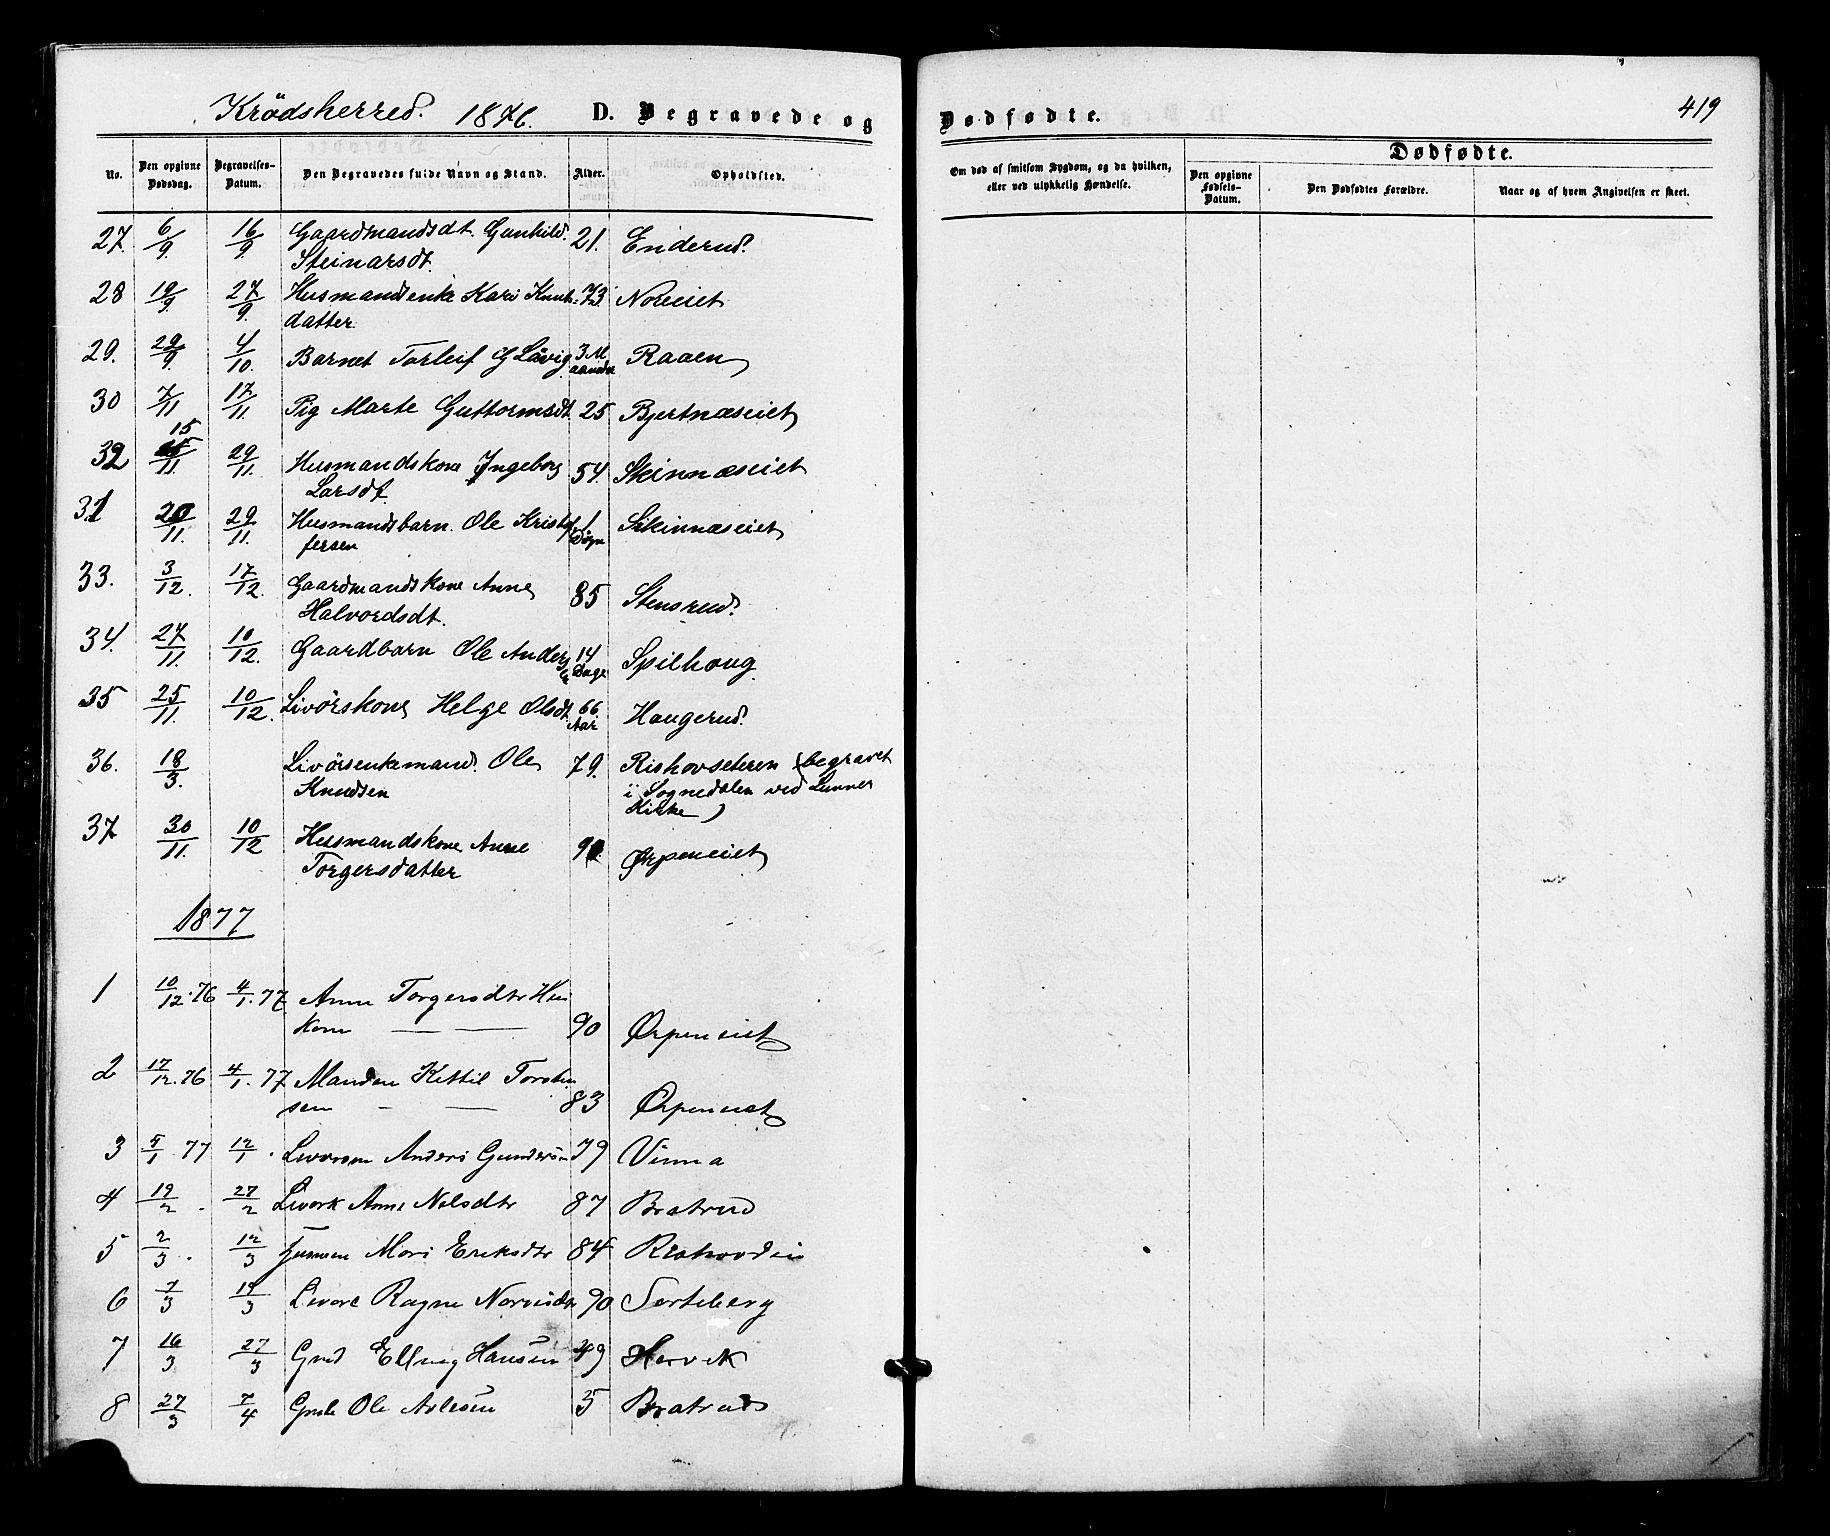 Krödsherred. 1876. D. Begravede og
Dødfødte. 419
No. Den opgivne Dødsdag. Begravelses-Datum. Den Begravedes fulde Navn og Stand. Alder. Opholdsted.
Om død af smitsom Sygdom, og da hvilken, eller ved ulykkelig Hændelse. Dødfødte. Den opgivne Fødsels-Datum. Den Dødfødtes Forældre. Naar og af hvem Angivelsen er skeet.
27. 6/9 16/9 Gaardmandsdt. Gunhild 21. Enderud.
Steinarsdt.
28 19/9. 27/9. Husmandsenke Kari Knut- 73. Noreiet
datter.
29. 29/9 4/10. Barnet Torleif 3 M Raaen
aaneder
30 7/11 17/11. Pig Marte Guttormsdt. 25 Bjertnæseiet
15
32 /11. 29/11. Husmandskone Ingeborg 54. Skinnæseiet
Larsdt.
31 20/11. 29/11. Husmandsbarn. Ole Kristof 1 Skinnæseiet
fersen Døgn
33. 3/12. 17/12. Gaardmandskone Anne 85 Stensrud.
Halvordsdt.
34. 27/11. 10/12. Gaardbarn Ole Anders 14 Spilhoug
Dage
35 25/11. 10/12. Livörskone Helge Olsdt. 66 Haugerud.
Aar
36. 18/3. Livörsenkemand. Ole 79. Riskovseteren (begravet
Knudsen i Sognedalen ved Lunner
Kirke)
37 30/11. 10/12 Husmandskone Anne Ørpeneiet
Torgersdatter
1877
1 10/12.76 4/1.77 Anne Torgersdtr Hus
kone — — 90 Ørpeneiet
2 17/12.76 4/1.77 Manden Kittil Torsten
sen - — 83 Ørpeneiet
3 5/1 77 12/1. Anders Gunders 79 Vinna
4 19/2. 27/2 Livørk Anne Nilsdtr 87 Bratrud
5 2/3. 12/3 Mari Eriksdtr 84
6 7/3 19/3 Ragne 90 Sorteberg
7 16/3 27/3 Gmd Elling Hansen 49
8 27/3 7/4 Ole 5 Bratrud